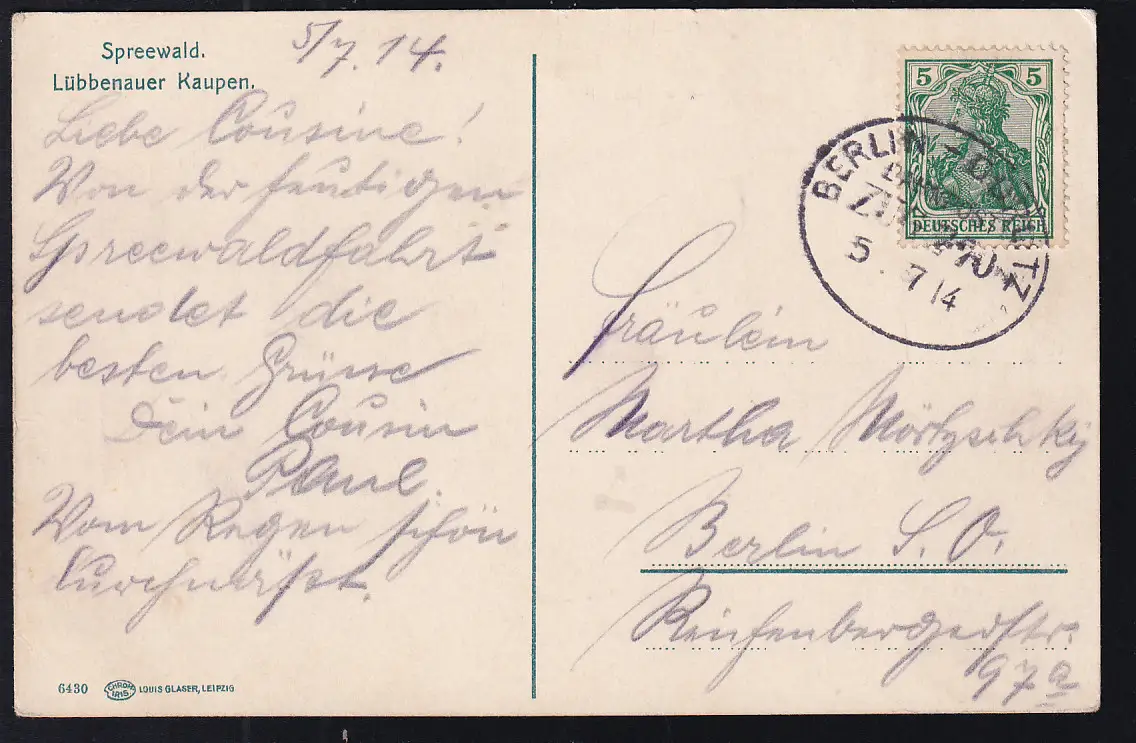 Spreewald.
Lübbenauer Kaupen.
5/7. 14.
Liebe Cousine!
Von der heutigen
Spreewaldfahrt
sendet die
besten Grüsse
Dein Cousin
Paul.
Vom Regen schön
durchnäßt.
6430
CHROM IRIS
LOUIS GLASER, LEIPZIG
5 5
DEUTSCHES REICH
BERLIN
BAHNPOST
ZUG
5 . 7 14
Fräulein
Martha
Berlin S. O.
97a